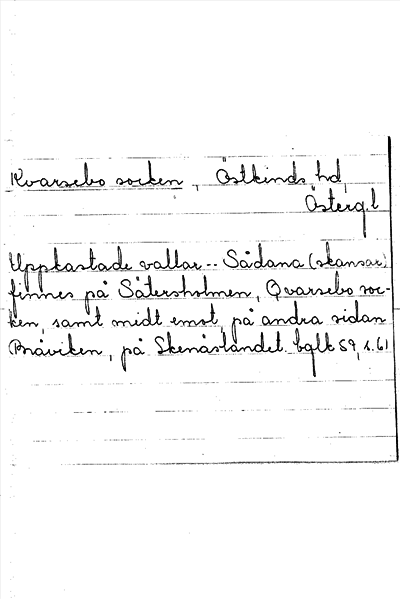 Kvarsebo socken, Östkinds hd,
Östergl
Uppkastade vallar -- Sådana (skansar)
finnes på Sätersholmen, Qvarsebo soc-
ken, samt midt emot, på andra sidan
Bråviken, på Skenäslandet. bglt 59, s. 61